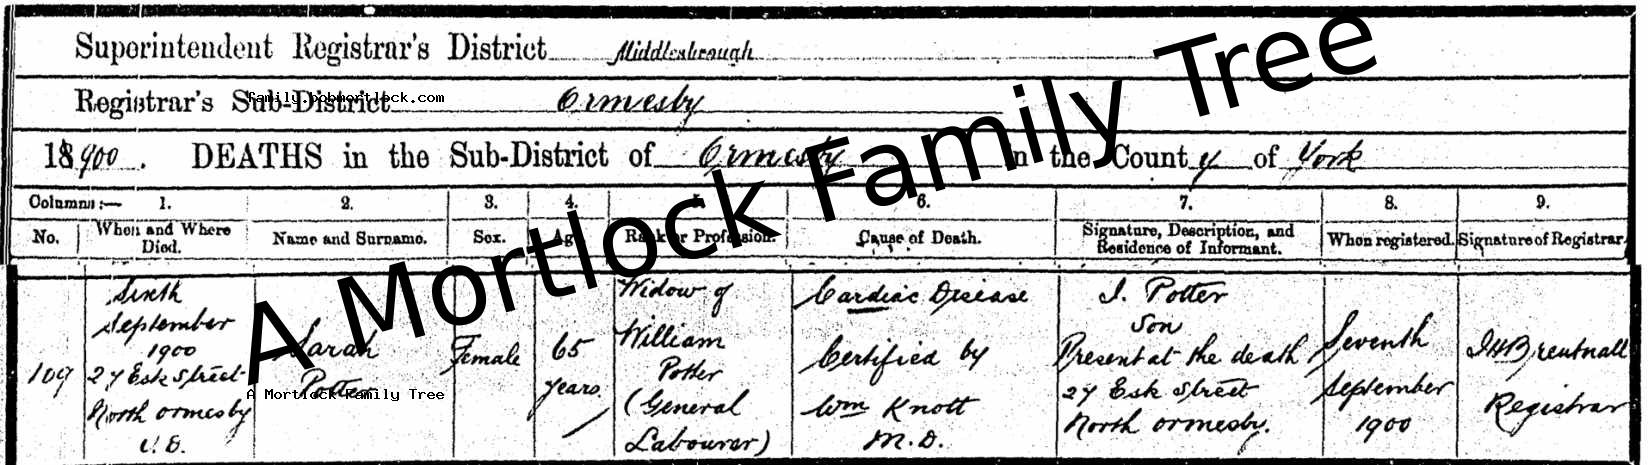 Superintendent Registrar's District Middlesbrough
Registrar's Sub-District Ormesby
family.bobmortlock.com
1900. DEATHS in the Sub-District of Ormesby in the County of York
A Mortlock Family Tree
Columns:— 1. 2. 3. 4. 5. 6. 7. 8. 9.
No. When and Where Died. Name and Surname. Sex. Age. Rank or Profession. Cause of Death. Signature, Description, and Residence of Informant. When registered. Signature of Registrar.
109
Sixth
September
1900
27 Esk Street
North Ormesby
U.D.
Sarah
Potter
A Mortlock Family Tree
Female
65
years
Widow of
William
Potter
(General
Labourer)
Cardiac Disease
Certified by
Wm Knott
M.D.
J. Potter
Son
Present at the death
27 Esk Street
North Ormesby.
Seventh
September
1900
Registrar